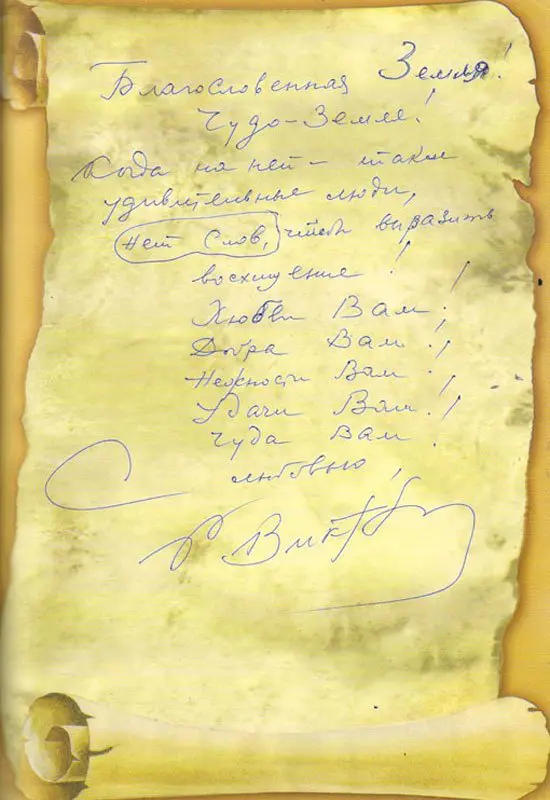 Благословенная Земля!
Чудо-Земля!
Когда на ней - такие
удивительные люди,
Нет Слов, чтоб выразить
восхищение!
Любви Вам!
Добра Вам!
Нежности Вам!
Удачи Вам!
Чуда Вам!
С любовью,
Р Викт